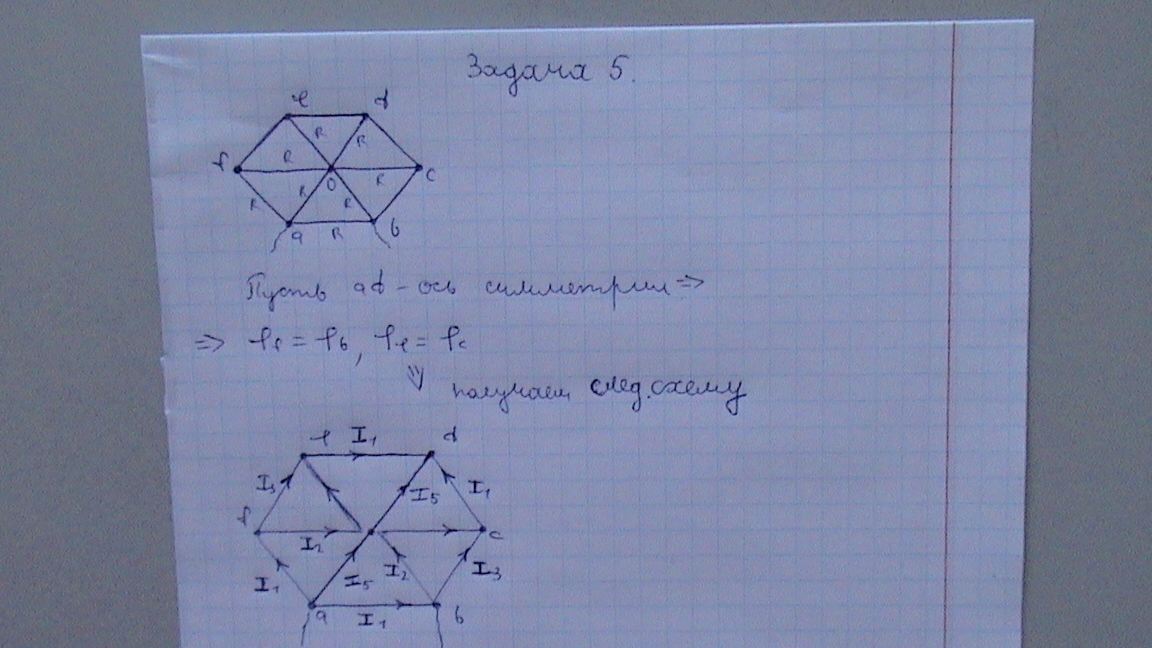 Задача 5.
e d
R R
f R R c
R O
R R
R a R b
Пусть ad - ось симметрии =>
=> φf = φb, φe = φc
⇓ получаем след. схему
e I1 d
I3 I5 I1
f I2 c
I1 I5 I2 I3
a I1 b